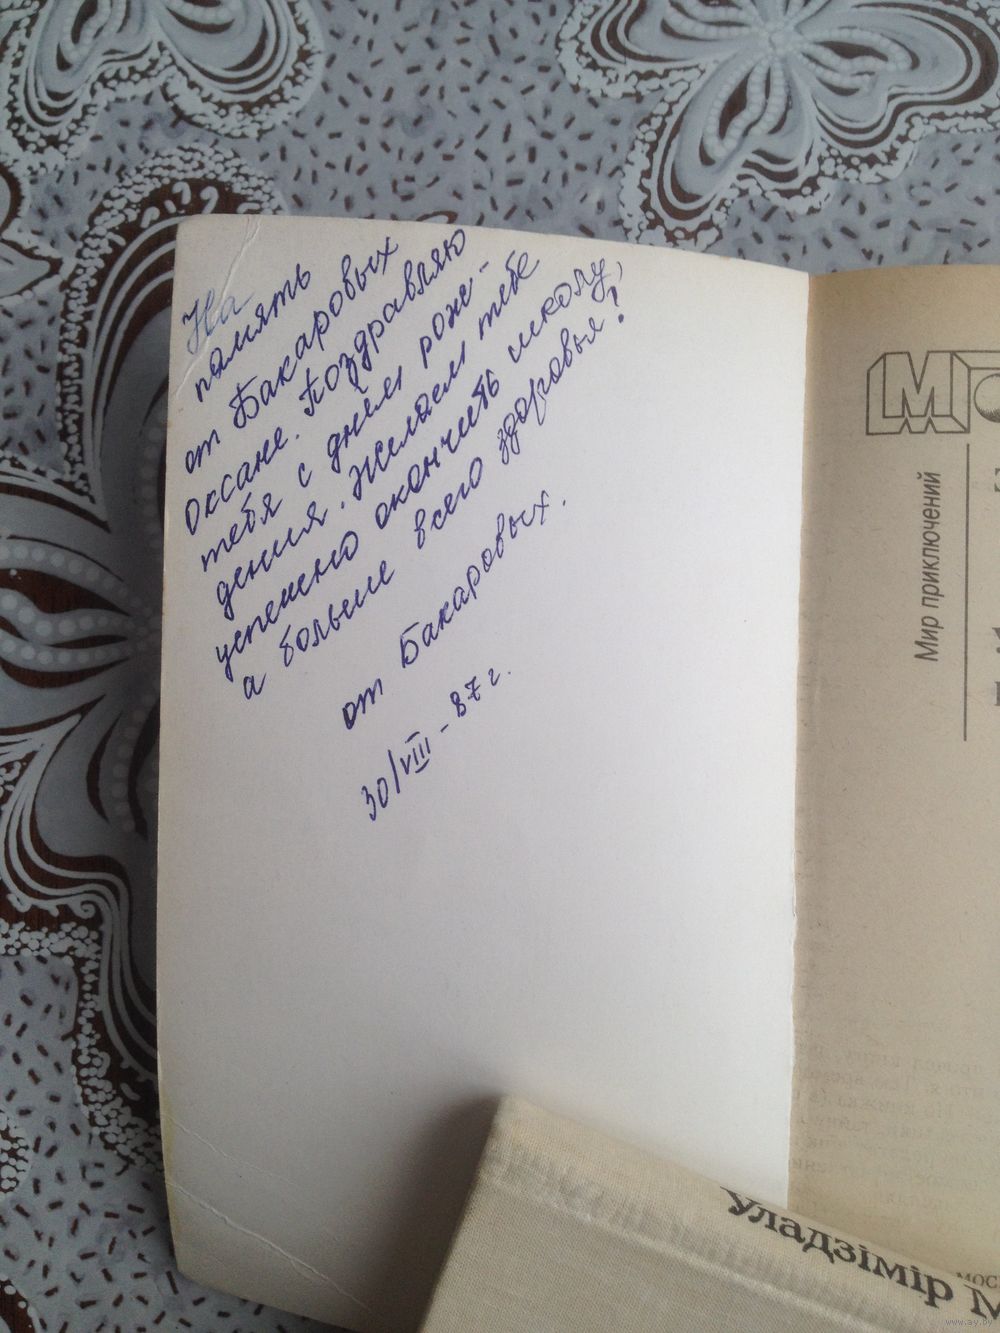 На
память
от Бакаровых
Оксане. Поздравляю
тебя с днём рож-
дения. Желаем тебе
успешно окончить школу,
а больше всего здоровья!
от Бакаровых.
30/VIII - 87 г.
Мир приключений
Уладзімір М
МОС
www.ay.by